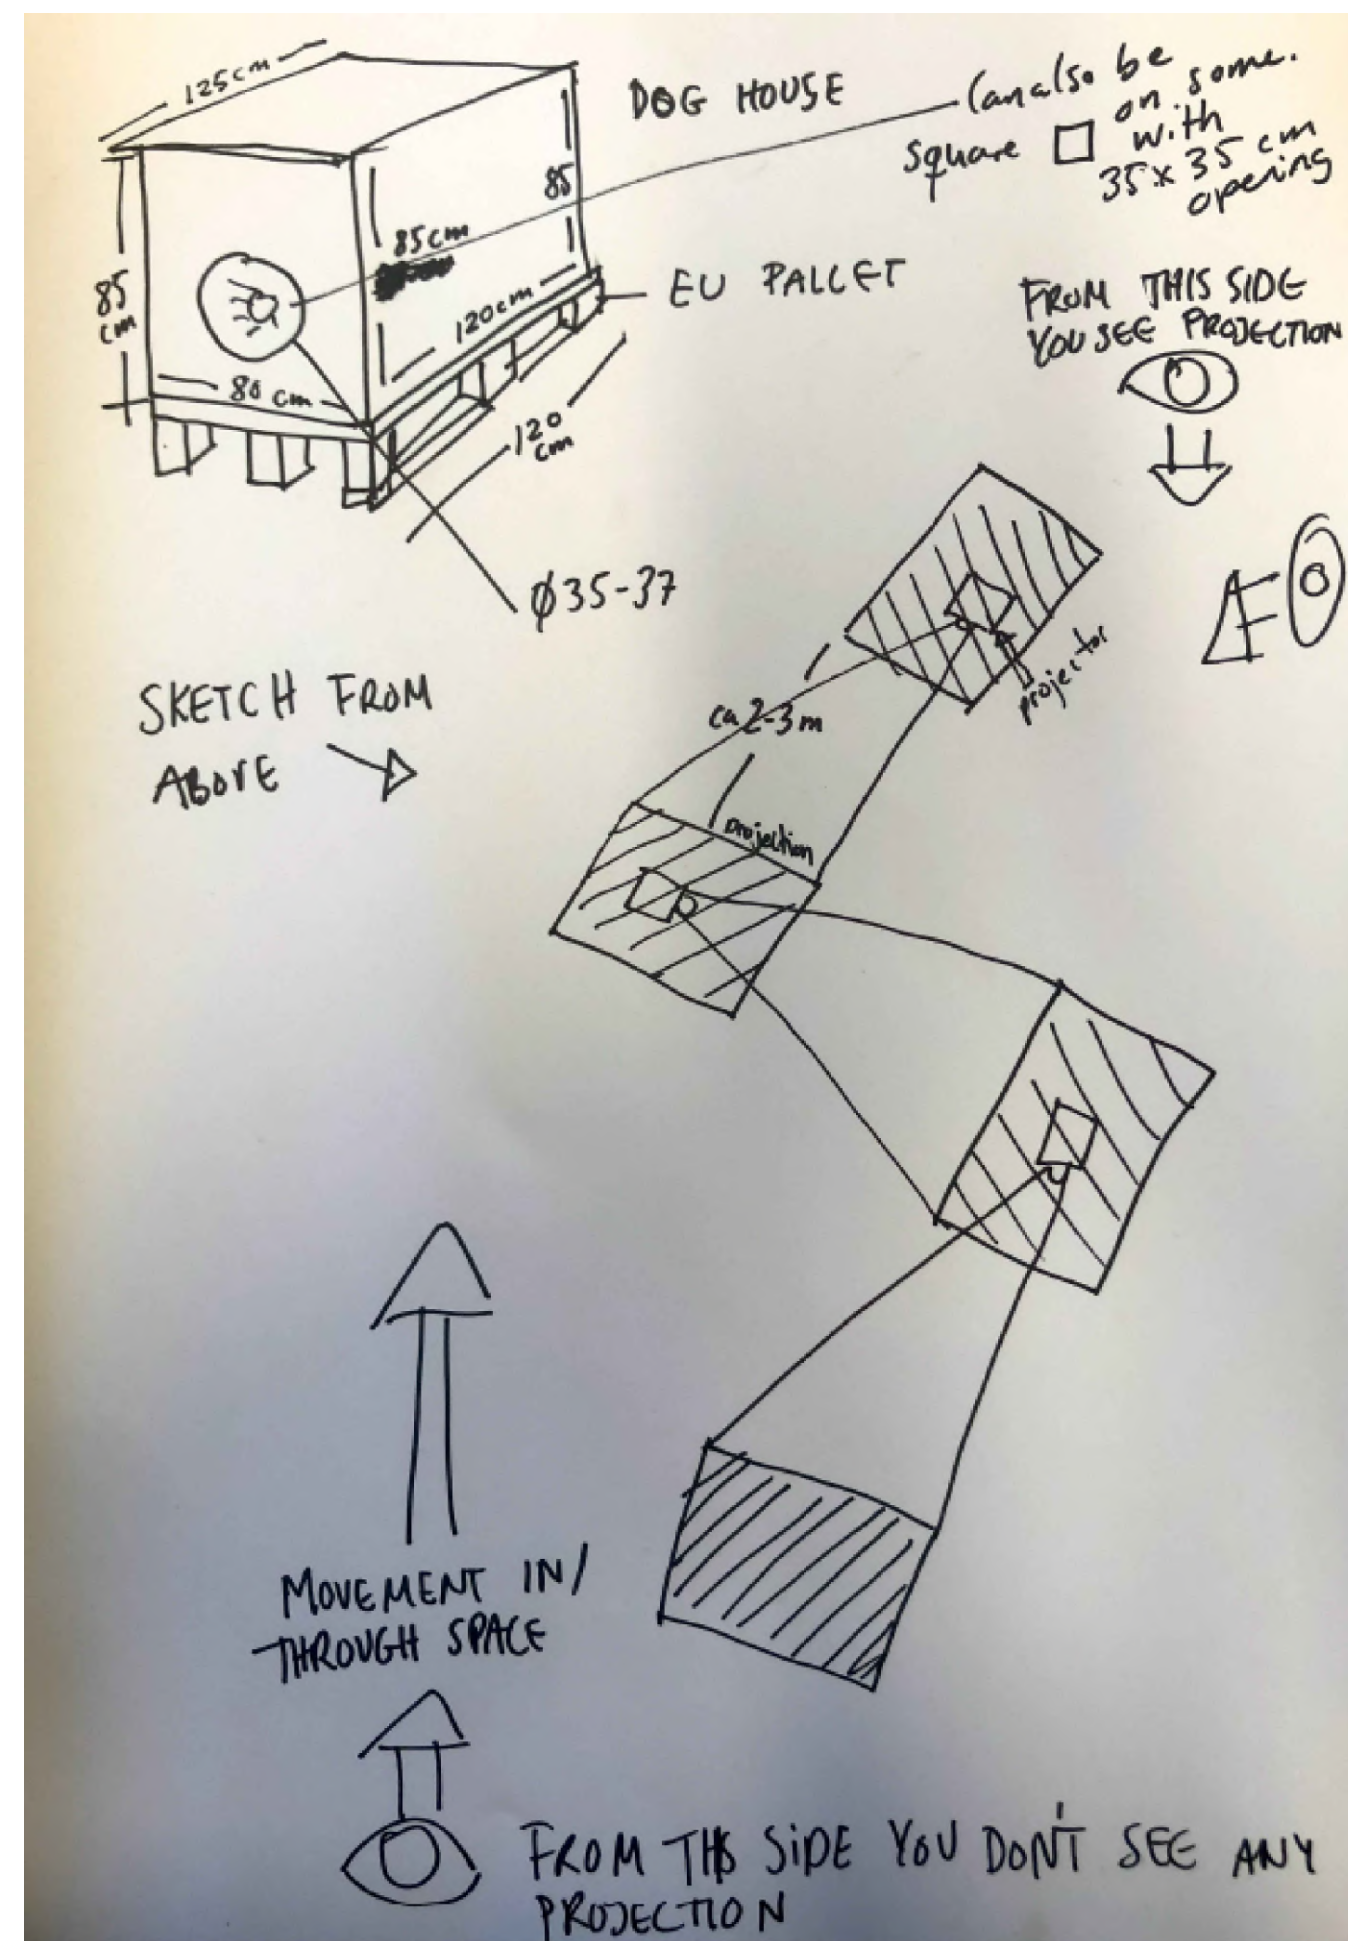 125cm
DOG HOUSE
Can also be
on some.
square □ with
35x35 cm
opening
85
85cm
85
cm
120cm
80 cm
EU PALLET
120
cm
FROM THIS SIDE
YOU SEE PROJECTION
Ø35-37
projector
SKETCH FROM
ABOVE
ca 2-3m
projection
MOVEMENT IN/
THROUGH SPACE
FROM THIS SIDE YOU DON'T SEE ANY
PROJECTION